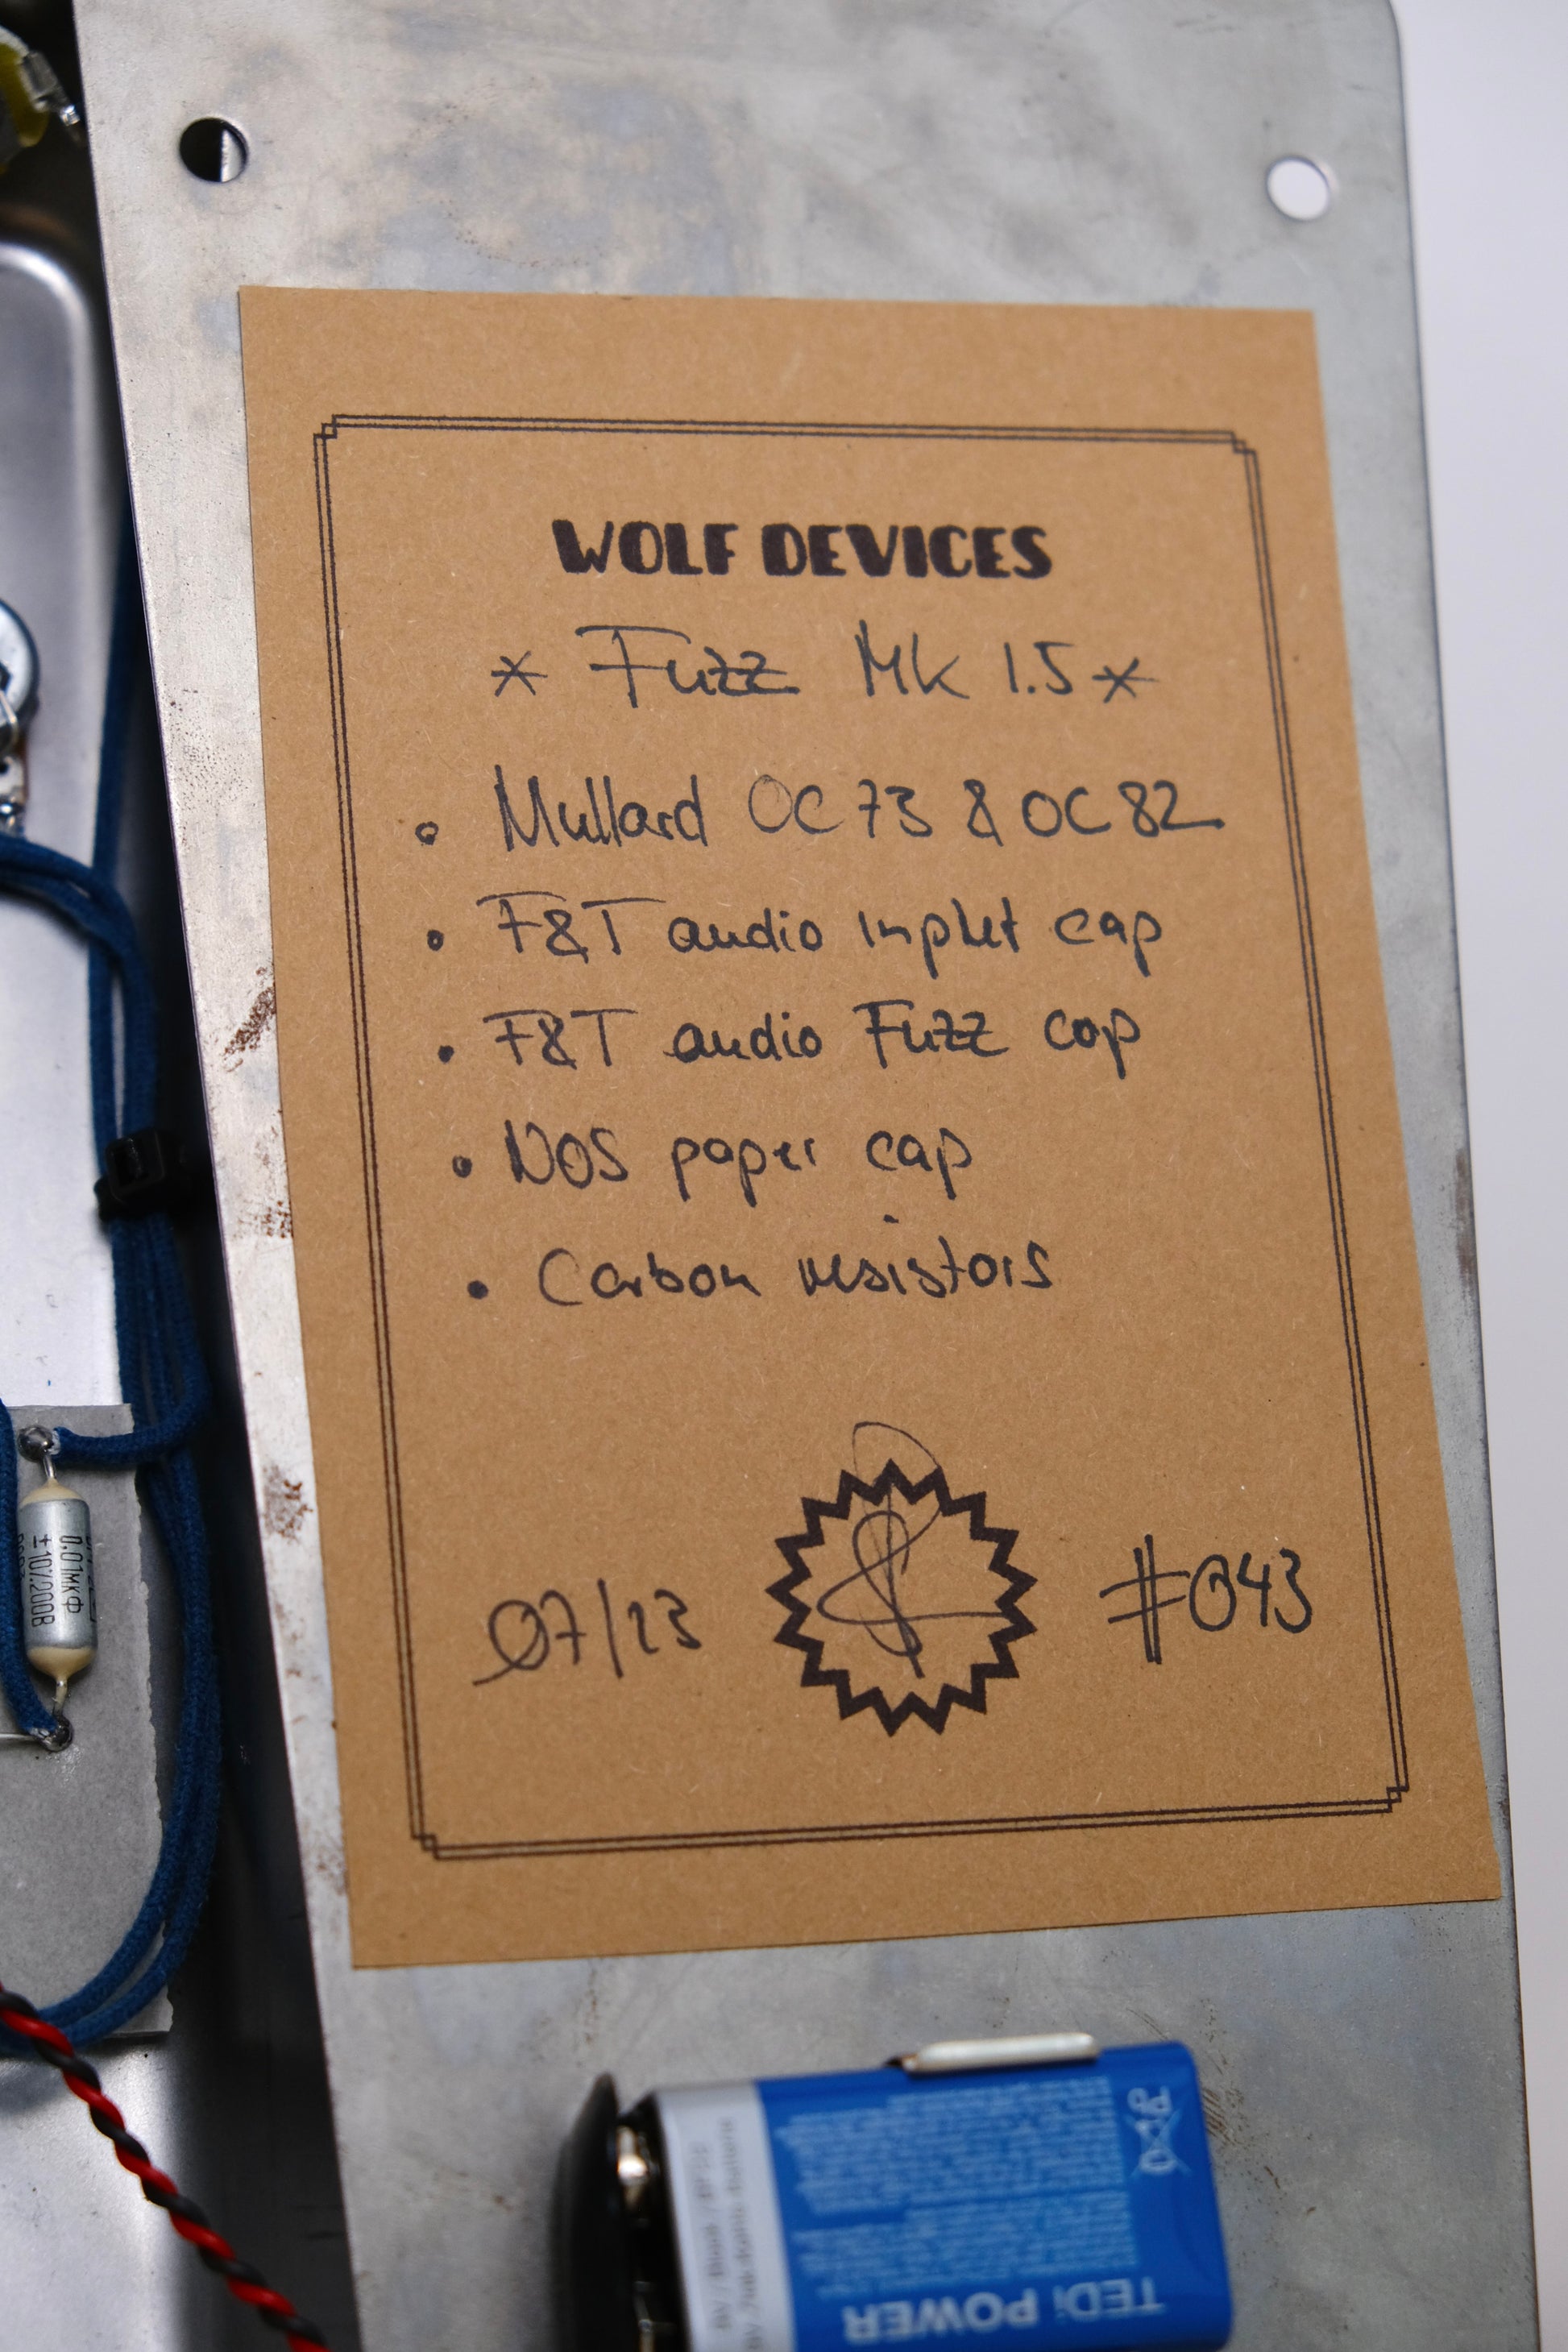 WOLF DEVICES
* Fuzz Mk 1.5 *
• Mullard OC73 & OC82
• F&T audio input cap
• F&T audio Fuzz cap
• NOS paper cap
• Carbon resistors
07/23
#043
0,01мкФ
±10% 200В
TEDi POWER